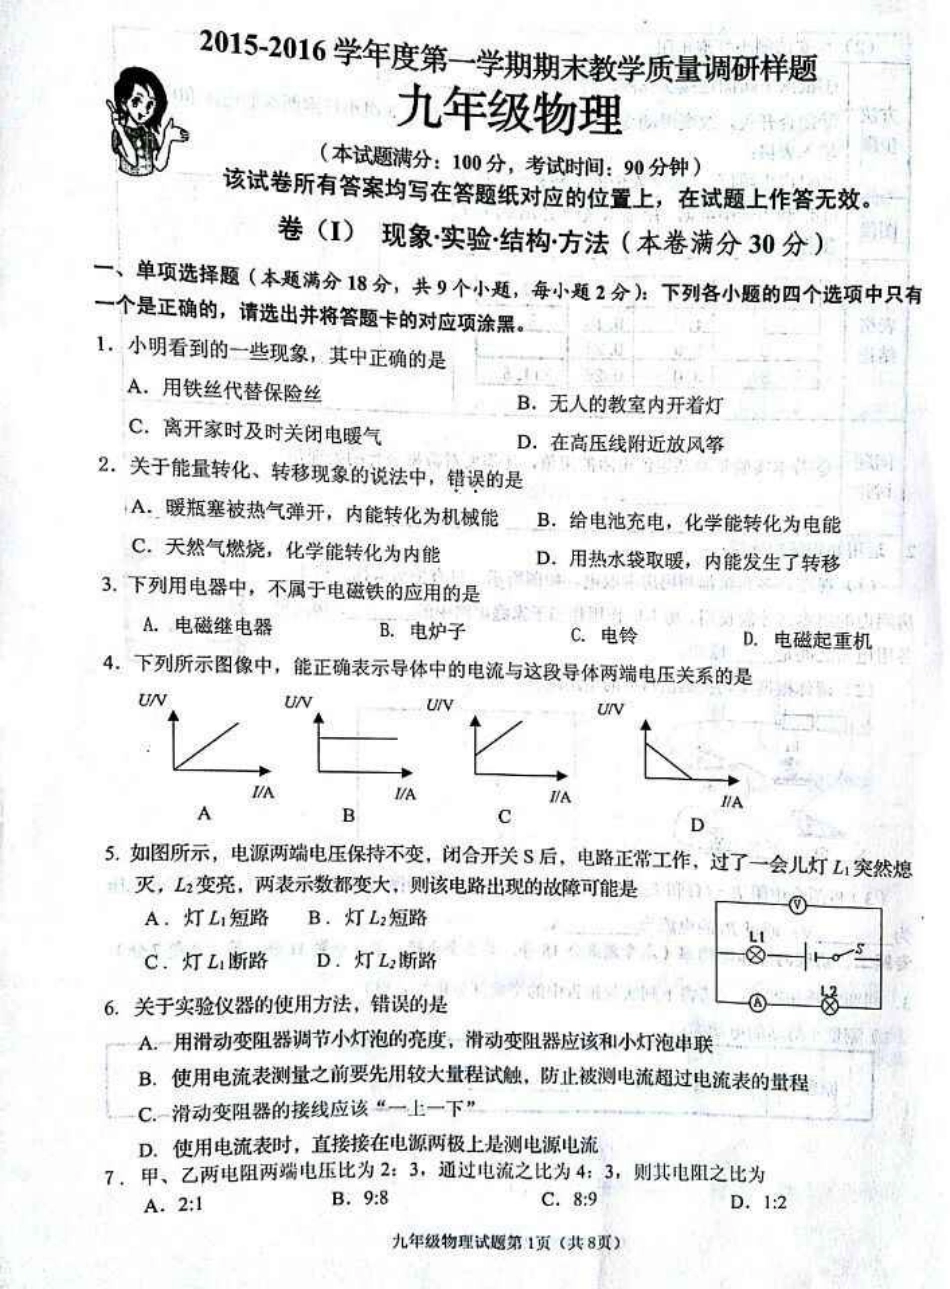 2015-2016 学年度第一学期期末教学质量调研样题
九年级物理
(本试题满分：100 分，考试时间：90 分钟)
该试卷所有答案均写在答题纸对应的位置上，在试题上作答无效。
卷（I） 现象·实验·结构·方法（本卷满分 30 分）
一、单项选择题（本题满分 18 分，共 9 个小题，每小题 2 分）：下列各小题的四个选项中只有
一个是正确的，请选出并将答题卡的对应项涂黑。
1．小明看到的一些现象，其中正确的是
A．用铁丝代替保险丝 B．无人的教室内开着灯
C．离开家时及时关闭电暖气 D．在高压线附近放风筝
2．关于能量转化、转移现象的说法中，错误的是
A．暖瓶塞被热气弹开，内能转化为机械能 B．给电池充电，化学能转化为电能
C．天然气燃烧，化学能转化为内能 D．用热水袋取暖，内能发生了转移
3．下列用电器中，不属于电磁铁的应用的是
A. 电磁继电器 B. 电炉子 C. 电铃 D. 电磁起重机
4．下列所示图像中，能正确表示导体中的电流与这段导体两端电压关系的是
U/V U/V U/V U/V
I/A I/A I/A I/A
A B C D
5. 如图所示，电源两端电压保持不变，闭合开关 S 后，电路正常工作，过了一会儿灯 L1 突然熄
灭，L2 变亮，两表示数都变大，则该电路出现的故障可能是
A．灯 L1 短路 B．灯 L2 短路
C．灯 L1 断路 D．灯 L2 断路
V
L1 S
A L2
6. 关于实验仪器的使用方法，错误的是
A. 用滑动变阻器调节小灯泡的亮度，滑动变阻器应该和小灯泡串联
B. 使用电流表测量之前要先用较大量程试触，防止被测电流超过电流表的量程
C. 滑动变阻器的接线应该“一上一下”
D. 使用电流表时，直接接在电源两极上是测电源电流
7．甲、乙两电阻两端电压比为 2：3，通过电流之比为 4：3，则其电阻之比为
A．2:1 B．9:8 C．8:9 D．1:2
九年级物理试题第 1页（共 8页）